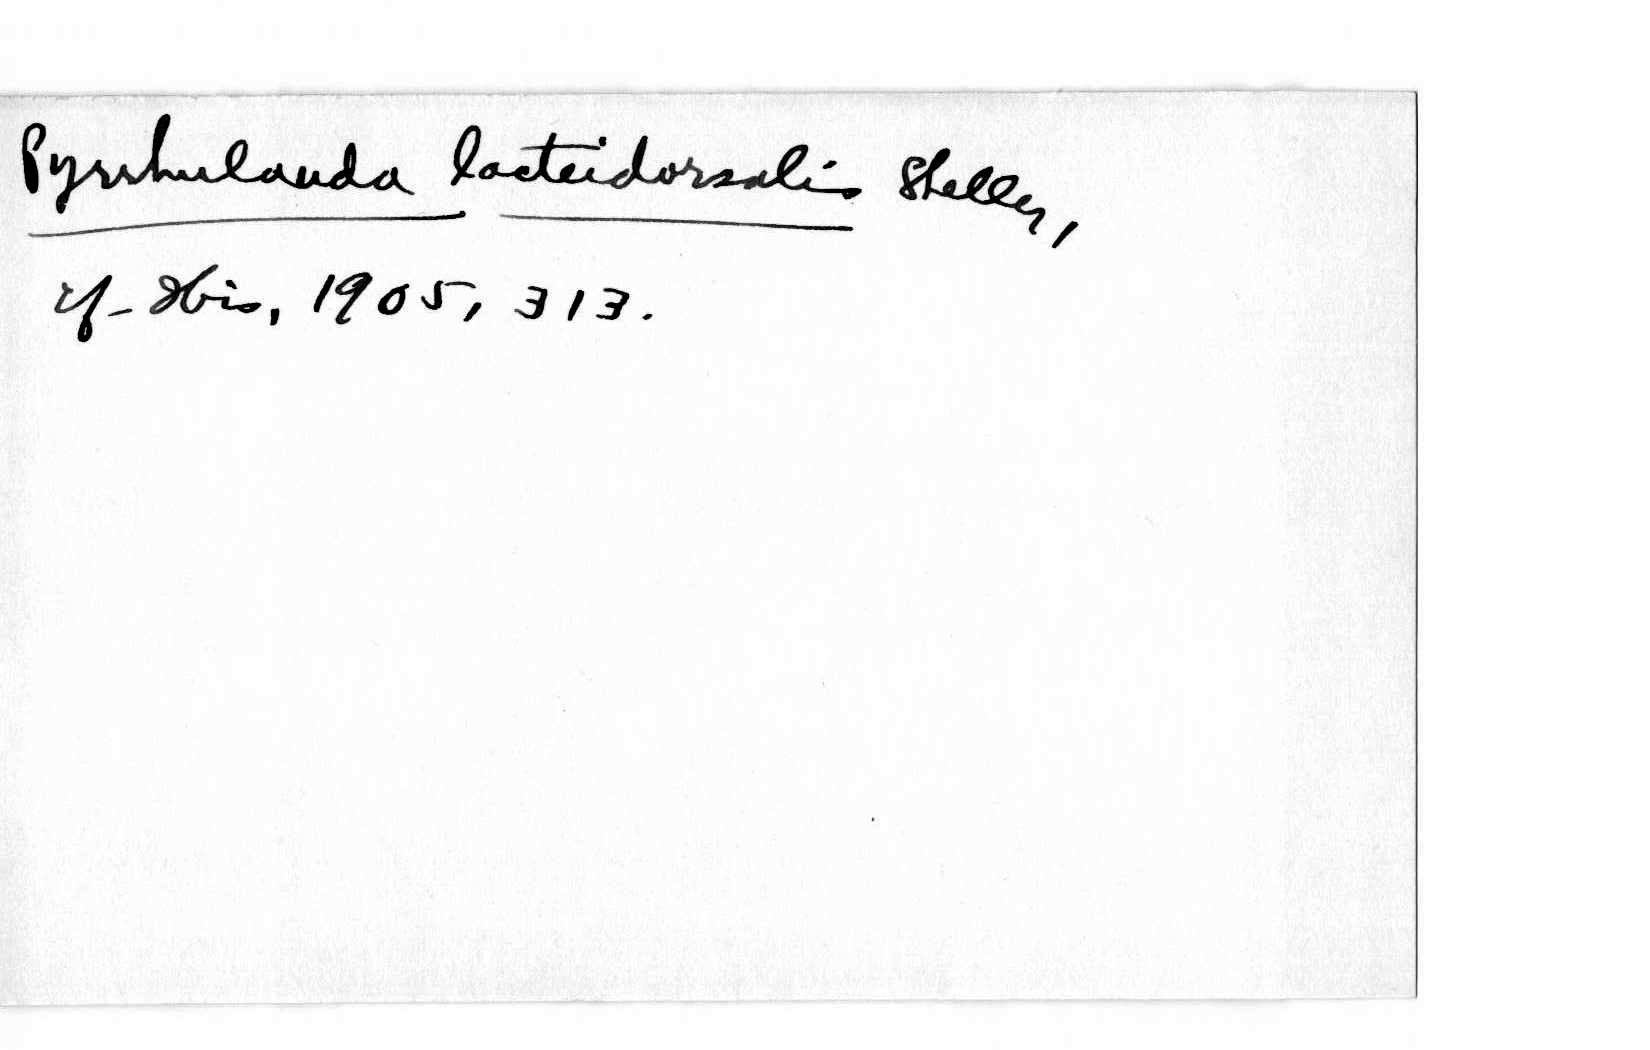 Pyrrhulauda lacteidorsalis Shelley,
cf. Ibis, 1905, 313.